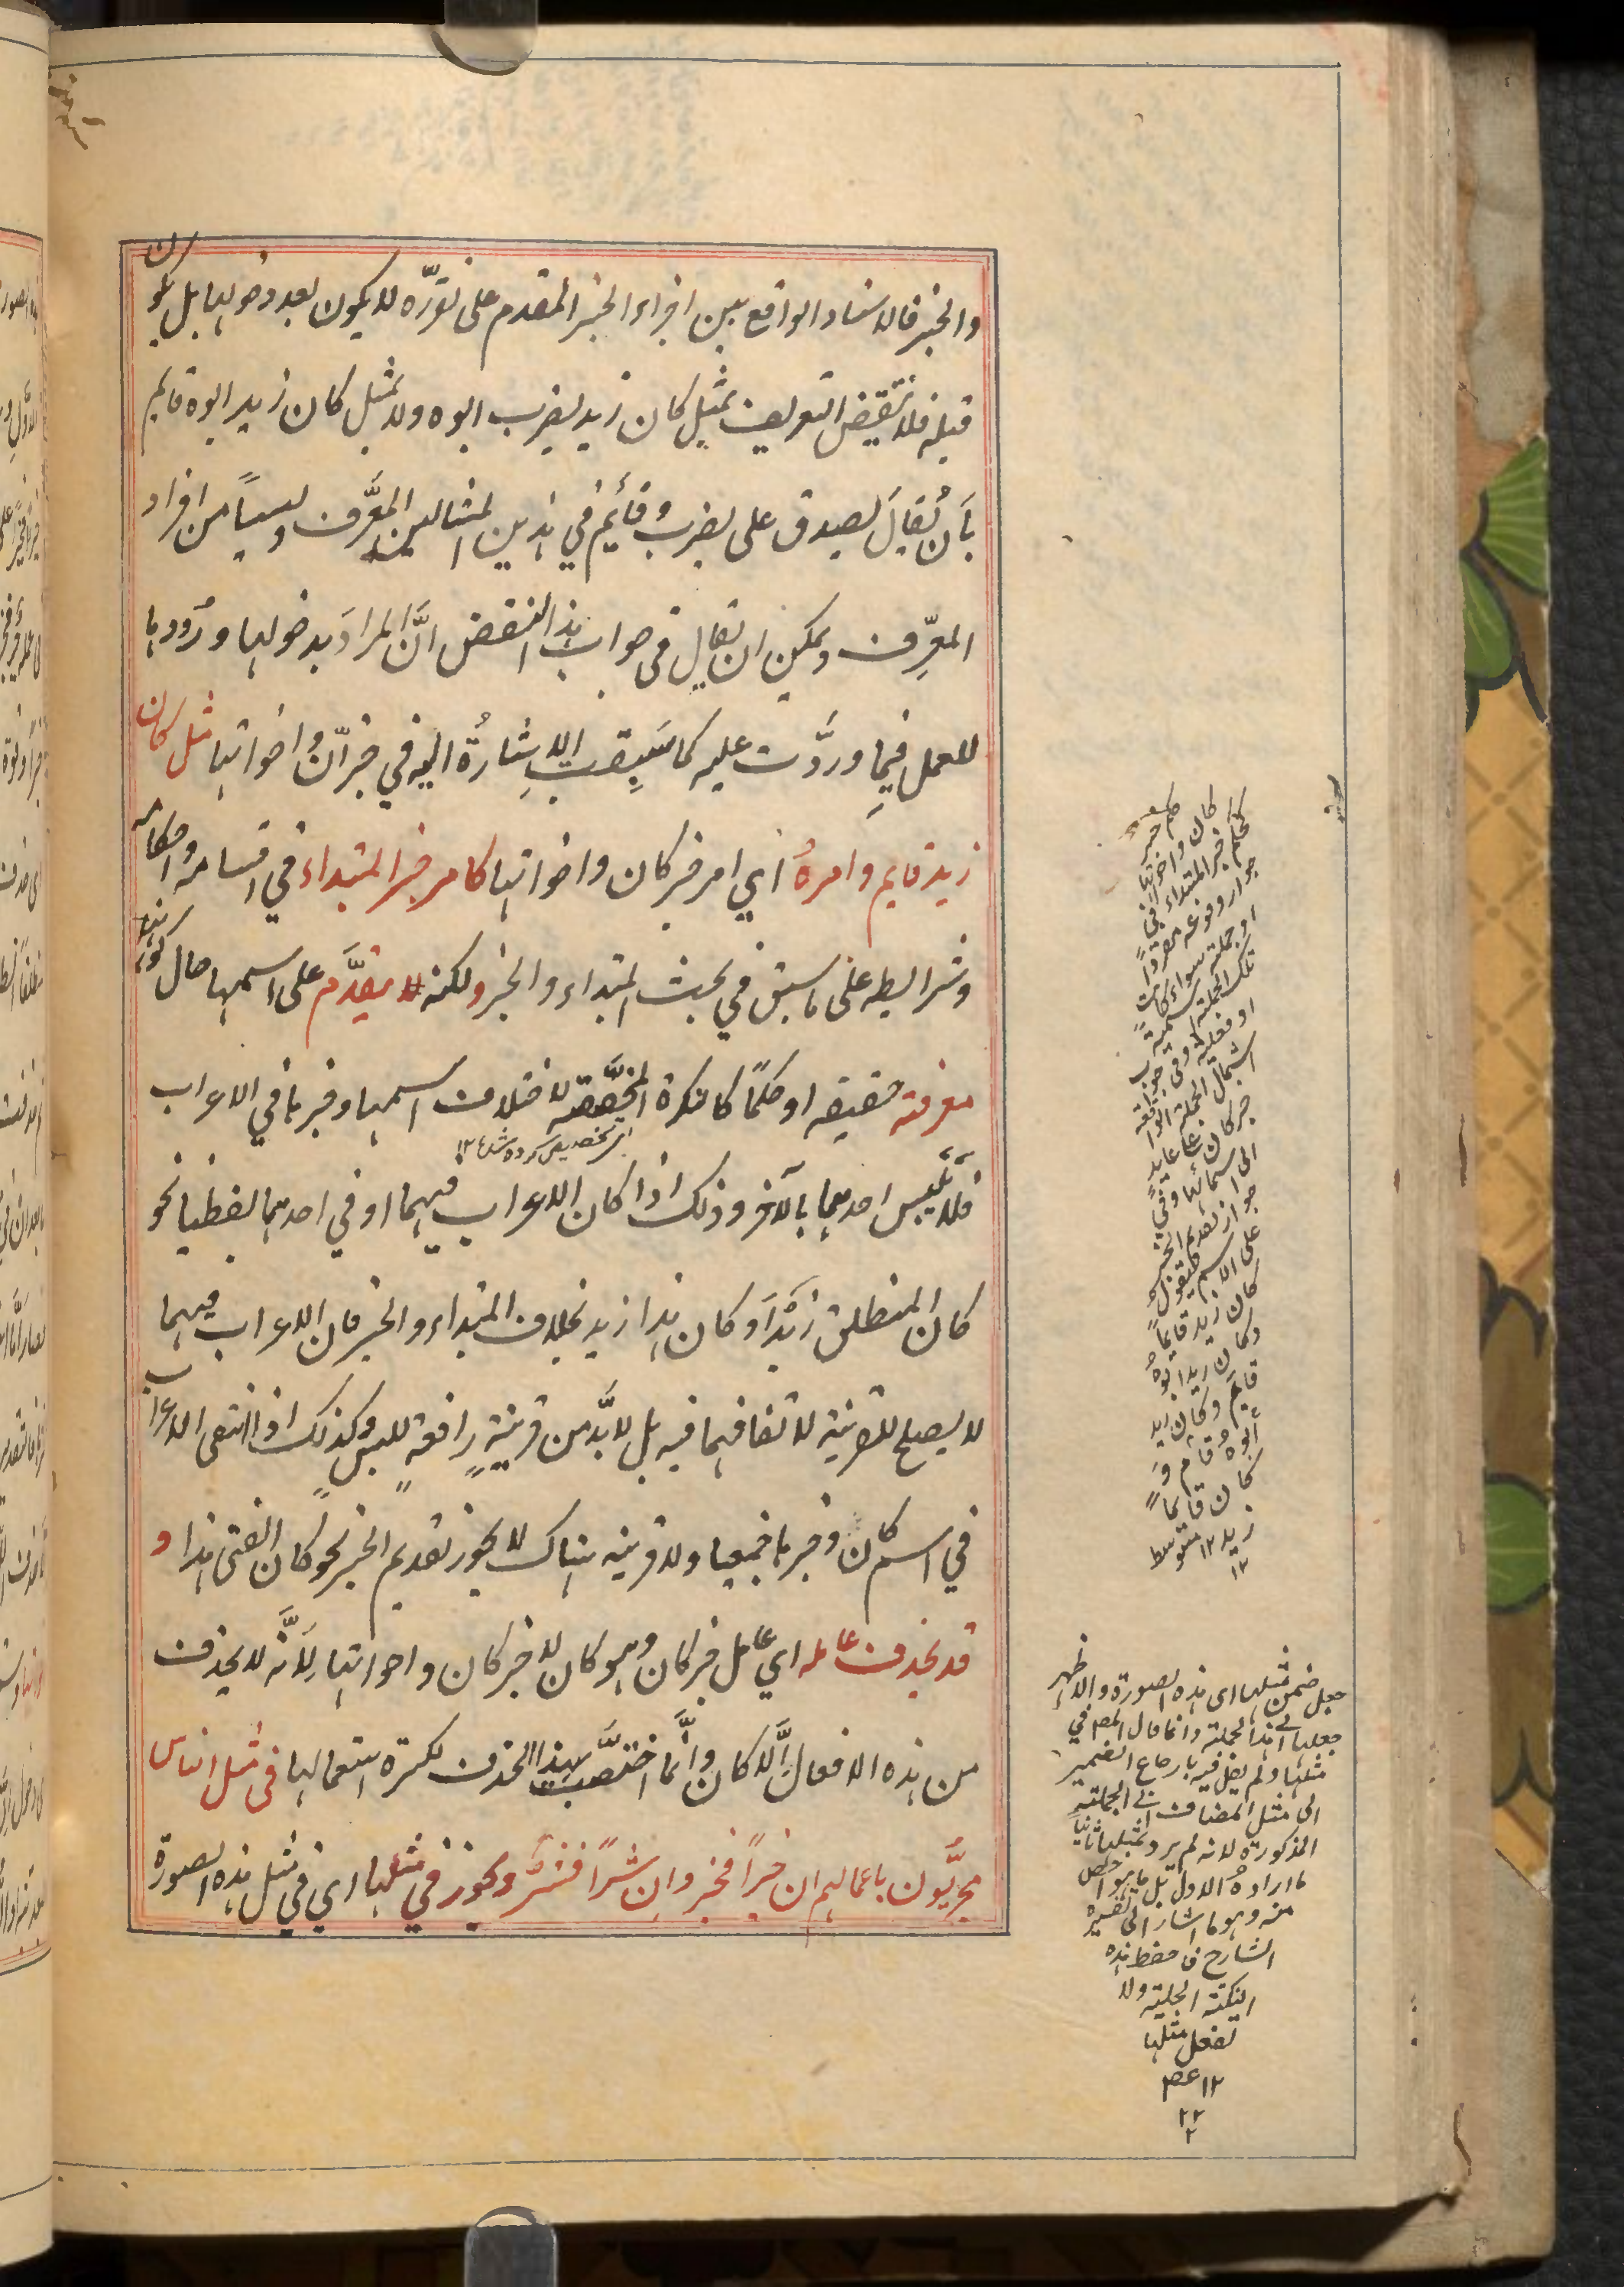 والخبر فالاسناد الواقع بين اجزاء الخبر المقدم على تقرره لا يكون بعد دخولها بل يكون
قبله فلا ينتقض التعريف بمثل كان زيد يضرب ابوه ولا بمثل كان زيد ابوه قايم
بأن يُقالَ يصدق على يضرب وقائم في هذين المثالين المعرَّف وليسا من افراد
المعرِّف ويمكن ان يقال في جواب هذا النقض انَّ المرادَ بدخولها ورُودها
للعمل فيما ورَدَت عليه كما سَبِقتِ الاِشارةُ اليه في خبر انّ واخواتها مثل كان
زيد قايم وامرهُ اي امر خبر كان واخواتها كامر خبر المبتداء في اقسامه واحكامه
وشرايطه على ما سبق في بحث المبتداء والخبر ولكنه يتقدَّم على اسمها حال كونه
معرفته حقيقه او حكمًا كالنكرة المخصَّصة لاختلاف اسمها وخبرها في الاعراب
اى تخصيص كرده شده ١٢
فلا يَلتبس احدهما بالآخر وذلك اذا كان الاعراب فيهما او في احدهما لفظيا نحو
كان المنطلق زَيْدًا وكان هذا زيد بخلاف المبتداء والخبر فان الاعراب فيهما
لا يصلح للقرينة لاتفاقهما فيه بل لا بدَّ من قرينةٍ رافعةٍ للبسٍ وكذلك اذا انتفى الاعراب
في اسم كان وخبرها جميعا ولا قرينه هناك لا يجوز تقديم الخبر نحو كان الفتى هذا و
قد يحذف عامله اي عامل خبر كان وهو كان لا خبر كان واخواتها لِاَنَّه لا يحذف
من هذه الافعال اِلَّا كان واِنَّما اختصَّت بهذا الحذف لكثرة استعمالها في مثل الناس
مجزيُّون باعمالهم ان خيرًا فخير وان شرًا فشرٌّ ويجوز في مثلها اي في مثل هذه الصورة
حكم خبر
كان واخواتها
كحكم خبر المبتداء في
جواز وقوعه مفرداً
او جملته سواء كانت
تلك الجملته اسميةً
او فعليةً وفي وجوب
اشتمال الجملة الواقعة
خبر كان على عايدٍ
الى اسمائها وفي
جواز تقديم الخبر
على الاسم فيقول
كان زيد قايماً
وكان زيد ابوهُ
قايم وكان زيد
ابوه وقام وَ
كان قايماً
زيد ١٢ متوسط
١٢
جعل ضمن مثلها اى هذه الصورة والاظهر
جعلها الى هذا لجملته وانما قال المص في
مثلها ولم يقل فيه بارجاع الضمير
الى مثل المضاف الى الجملته
المذكورة لانه لم يرد بمثلها ثانيا
ما اراده الاول بل ما هو احص
منه وهو ما اشار الى تفسيره
الشارح فاحفظ هذه
النكتة الجلية ولا
تغفل مثلها
١٢ عص
٢٢
٢